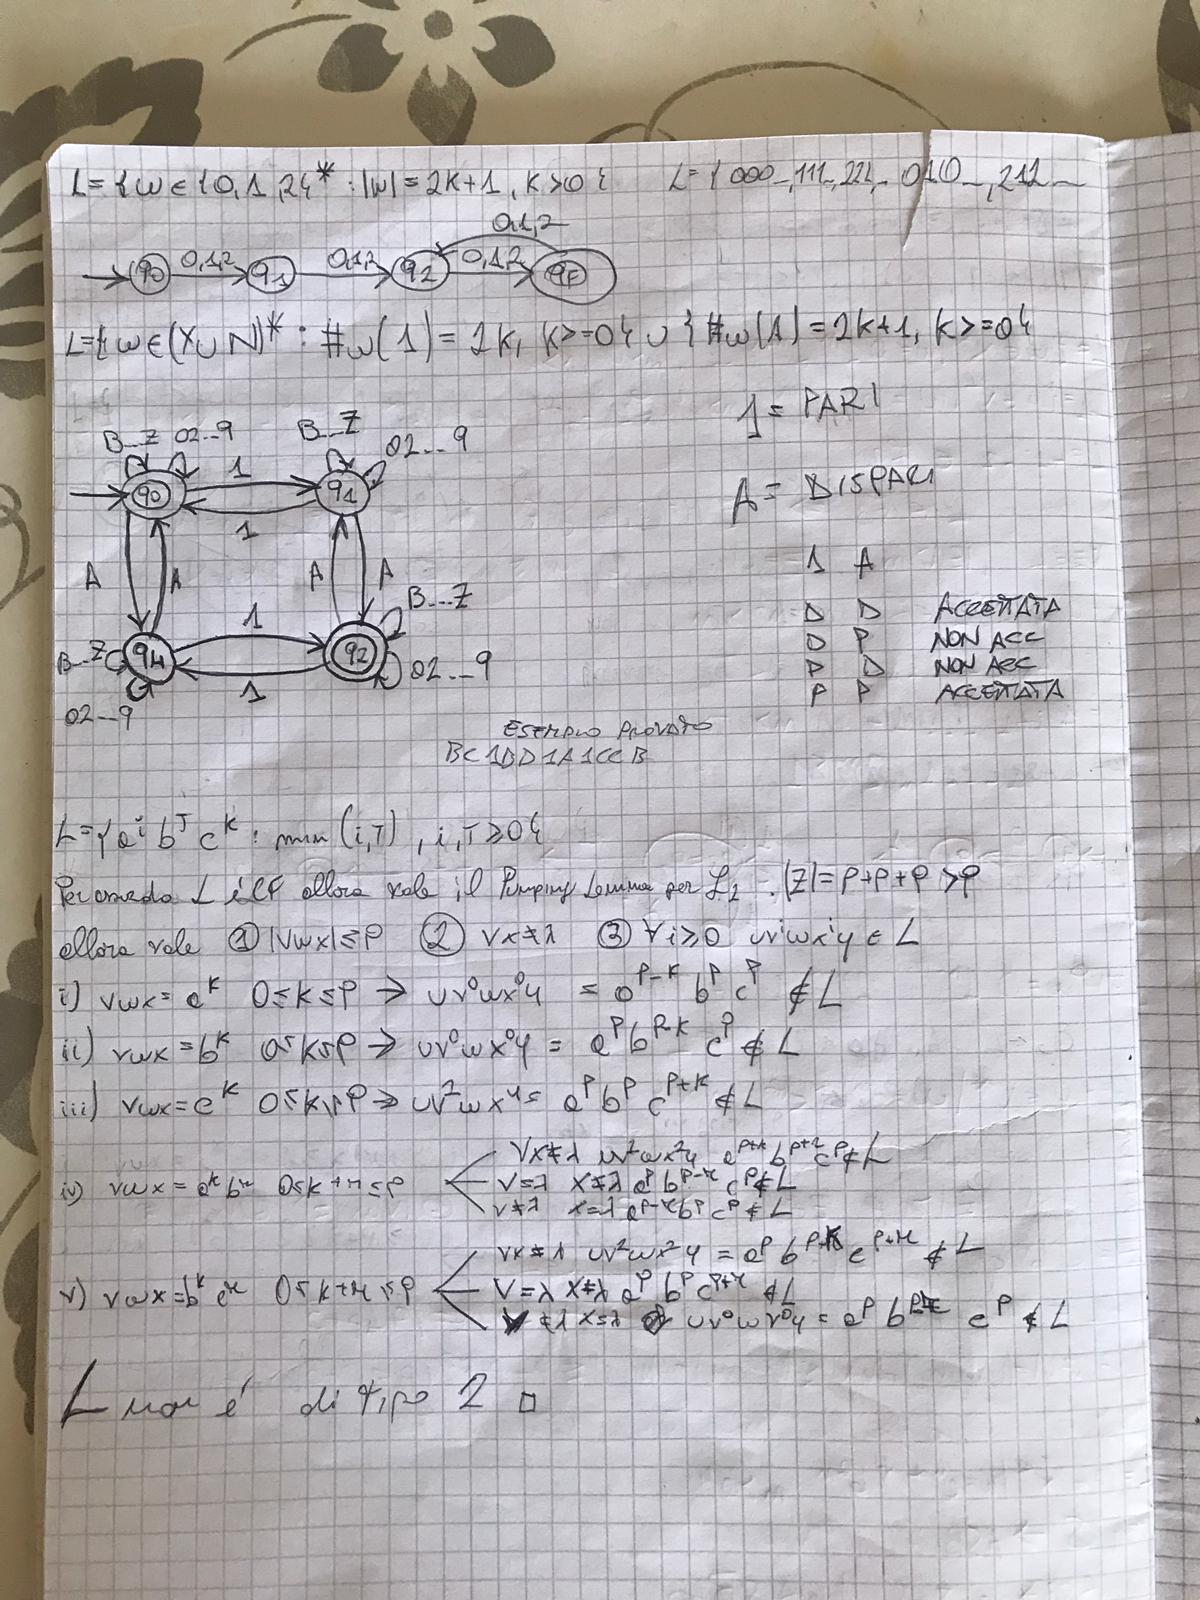 L={w ∈ {0,1,2}* : |w| = 2K+1, K>0} L={000_,111_,222_ 010_,212_
0,1,2
q0 0,1,2 q1 0,1,2 q2 0,1,2 qF
L={w ∈ (X∪N)* : #w(1) = 2K, K>=0} ∪ {#w(A) = 2K+1, K>=0}
1 = PARI
B__Z 02__9 B__Z 02__9
q0 1 q1
1
A = DISPARI
1 A
A A A A
B__Z
D D ACCETTATA
D P NON ACC
P D NON ACC
P P ACCETTATA
B__Z q4 1 q2 02__9
1
02__9
ESEMPIO PROVATO
BC1BD1A1CCB
L={a^i b^J c^K : min(i,J), i,J ≥ 0}
Per assurdo L è CF allora vale il Pumping Lemma per L2. |Z| = P+P+P > P
allora vale ① |vwx| ≤ P ② vx ≠ λ ③ ∀i≥0 uv^i wx^i y ∈ L
i) vwx = a^K 0≤K≤P → uv^0wx^0y = a^{P-K} b^P c^P ∉ L
ii) vwx = b^K 0≤K≤P → uv^0wx^0y = a^P b^{P-K} c^P ∉ L
iii) vwx = c^K 0≤K≤P → uv^2wx^y = a^P b^P c^{P+K} ∉ L
iv) vwx = a^K b^r 0≤K+r≤P
vx≠λ uv^2wx^2y a^{P+K} b^{P+r} c^P ∉ L
v=λ x≠λ a^P b^{P-r} c^P ∉ L
v≠λ x=λ a^{P-r} b^P c^P ∉ L
v) vwx = b^K c^r 0≤K+r≤P
vx≠λ uv^2wx^2y = a^P b^{P+K} c^{P+r} ∉ L
v=λ x≠λ a^P b^P c^{P+r} ∉ L
v≠λ x=λ uv^0wv^0y = a^P b^{P-K} c^P ∉ L
L non è di tipo 2 □